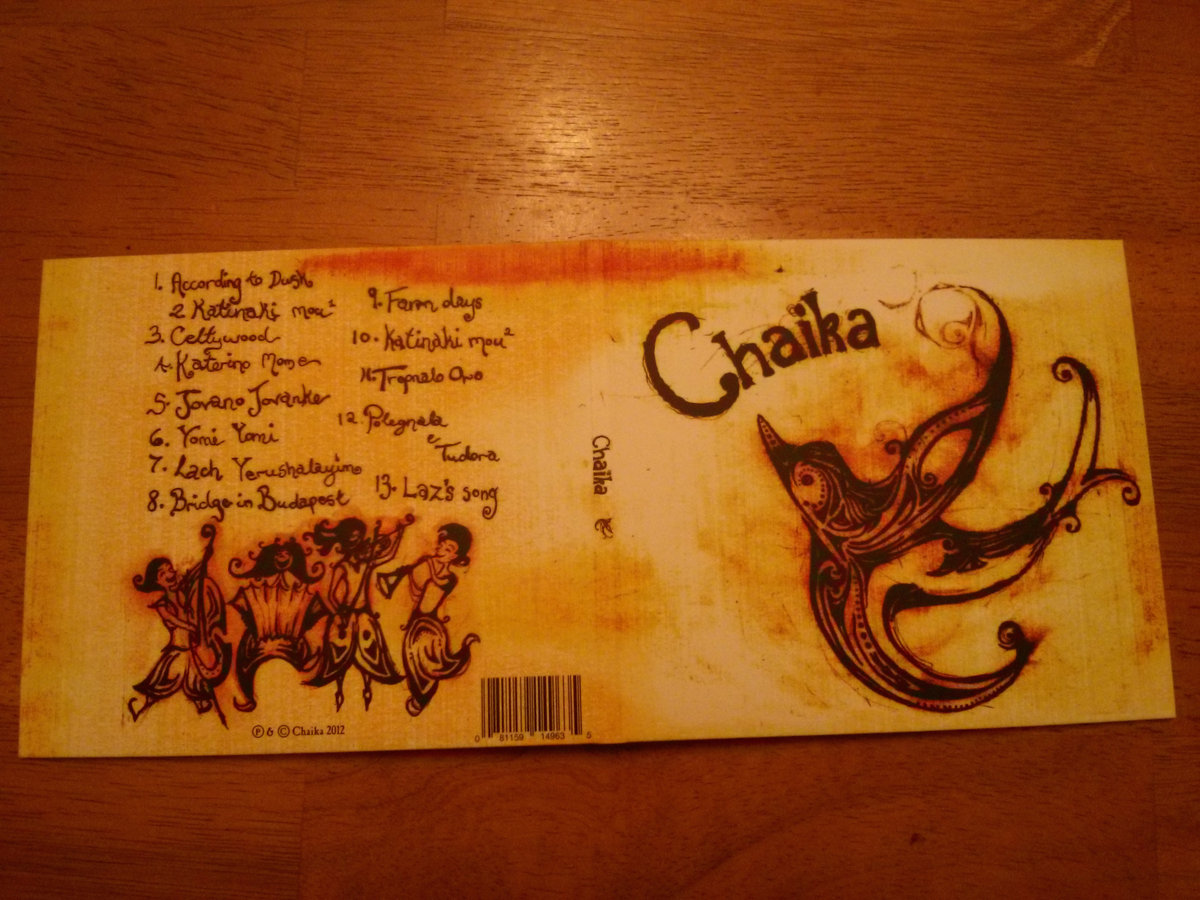 1. According to Dusk
2 Katinaki mou¹
3. Celtywood
4. Katerino Mome
5. Jovano Jovanke
6. Yomi Yomi
7. Lach Yerushalayim
8. Bridge in Budapest
9. Farm days
10. Katinaki mou²
11. Tropnalo Oro
12 Polegnala
e
Tudora
13. Laz's song
℗ & © Chaika 2012
0 81159 14963 5
Chaika
Chaika